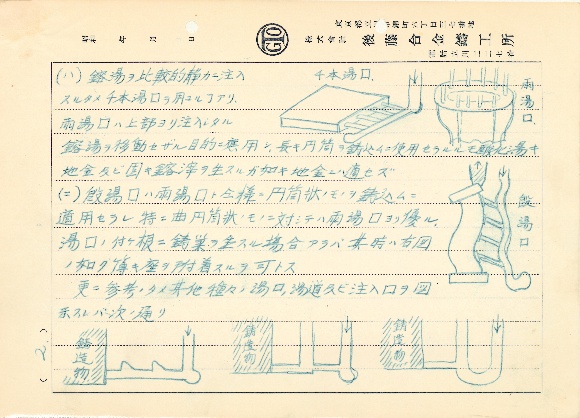 昭和 年 月 日
株式会社 後藤合金鑄工所
(ハ) 鎔湯ヲ比較的静カニ注入
スルタメ千本湯口ヲ用フルコトアリ.
千本湯口.
雨湯口.
雨湯口ハ上部ヨリ注入シタル
鎔湯ヲ移動セザル目的ニ應用シ、長キ円筒ヲ鋳込ムニ使用セラルルモ酸化シ易キ
地金及ビ固キ鎔滓ヲ生スルガ如キ地金ニハ適セズ
(ニ) 段湯口ハ雨湯口ト仝様ニ円筒状ノモノヲ鋳込ムニ
適用セラレ特ニ曲円筒状ノモノニ対シテハ雨湯口ヨリ優ル.
段湯口
湯口ノ付ケ根ニ鋳巣ヲ生スル場合アラバ其時ハ右図
ノ如ク 座ヲ附着スルヲ可トス
更ニ参考ノタメ其他種々ノ湯口,湯道及ビ注入口ヲ図
示スレバ次ノ通リ
鋳造物
鋳造物
鋳造物
(2.)